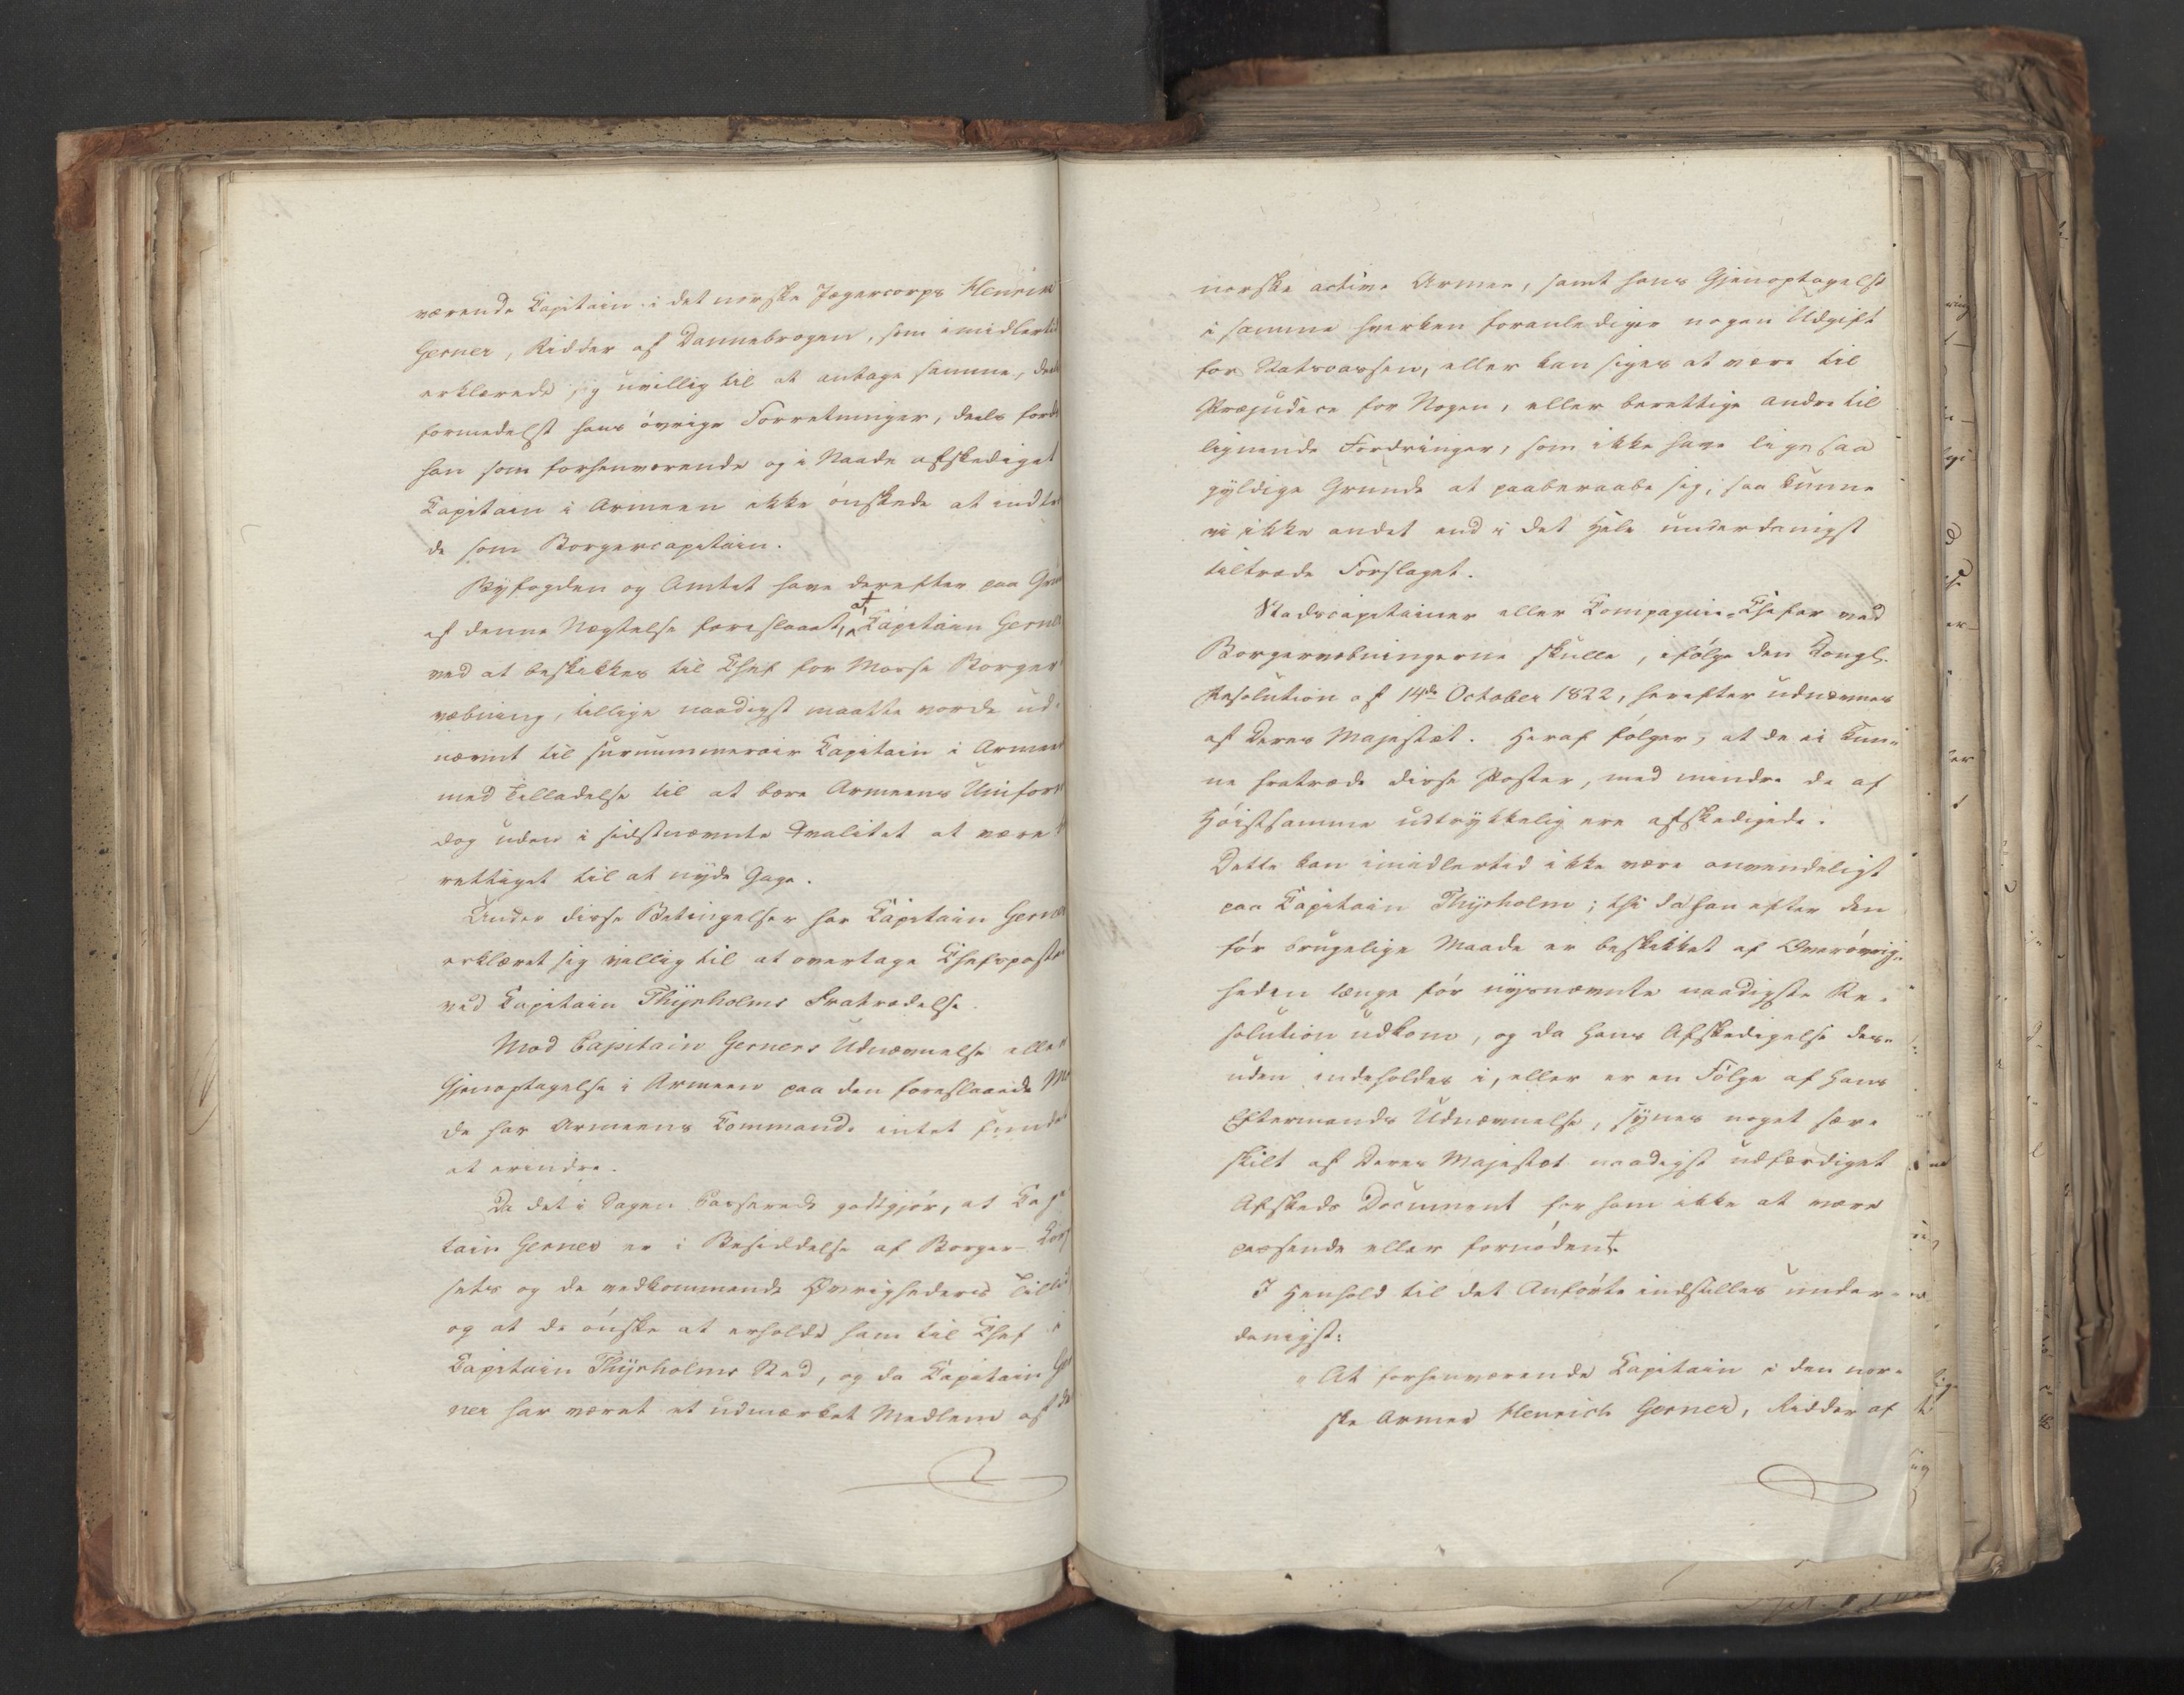 værende Capitain i det norske Jægercorps Henrich
Gerner, Ridder af Dannebrogen, som imidlertid
erklærede sig uvillig til at antage samme, deels
formedelst hans övrige Forretninger, deels fordi
han som forhenværende og i Naade afskediget
Capitain i Armeen ikke önskede at indtræ
de som Borgercapitain.
Byfogden og Amtet have derefter paa Grund
af denne Nægtelse foreslaaet, at Capitain Gerner
ved at beskikkes til Chef for Mosse Borger
væbning, tillige naadigst maatte vorde ud-
nævnt til surnummerair Capitain i Armeen
med Tilladelse til at bære Armeens Uniform
dog uden i sidstnævnte Qvalitet at være be
rettiget til at nyde Gage.
Under disse Betingelser har Capitain Gerner
erklæret sig villig til at overtage Chefsposten
ved Capitain Thyrholms Fratrædelse.
Mod Capitain Gerners Udnævnelse eller
Gjenoptagelse i Armeen paa den foreslaaede Maa
de har Armeens Commando intet fundet
at erindre.
Da det i Sagen Passerede godtgjör, at Capi
tain Gerner er i Besiddelse af Borger-Corp
sets og de vedkommende Øvrigheders Tillid
og at de önske at erholde ham til Chef i
Capitain Thyrholms Sted, og da Capitain Ger
ner har været et udmærket Medlem af den
norske active Armee, samt hans Gjenoptagelse
i samme hverken foranlediger nogen Udgift
for Statscassen, eller kan siges at være til
Præjudice for Nogen, eller berettige andre til
lignende Fordringer, som ikke have ligesaa
gyldige Grunde at paaberaabe sig, saa kunne
vi ikke andet end i det Hele underdanigst
tiltræde Forslaget.
Stadscapitainer eller Compagnie-Chefer ved
Borgervæbningerne skulle, ifölge den Kongl.
Resolution af 14de October 1822, herefter udnævnes
af Deres Majestæt. Heraf fölger, at de ei kun-
ne fratræde disse Poster, med mindre de af
Höistsamme udtrykkelig ere afskedigede.
Dette kan imidlertid ikke være anvendeligt
paa Capitain Thyrholm; thi da han efter den
för brugelige Maade er beskikket af Overövrig-
heden længe för nysnævnte naadigste Re-
solution udkom, og da hans Afskedigelse des-
uden indeholdes i, eller er en Fölge af hans
Eftermands Udnævnelse, synes noget sær-
skilt af Deres Majestæt naadigst udfærdiget
Afskeds Document for ham ikke at være
passende eller fornödent.
I Henhold til det Anförte indstilles under-
danigst:
"At forhenværende Capitain i den nor-
ske Armee Henrich Gerner, Ridder af